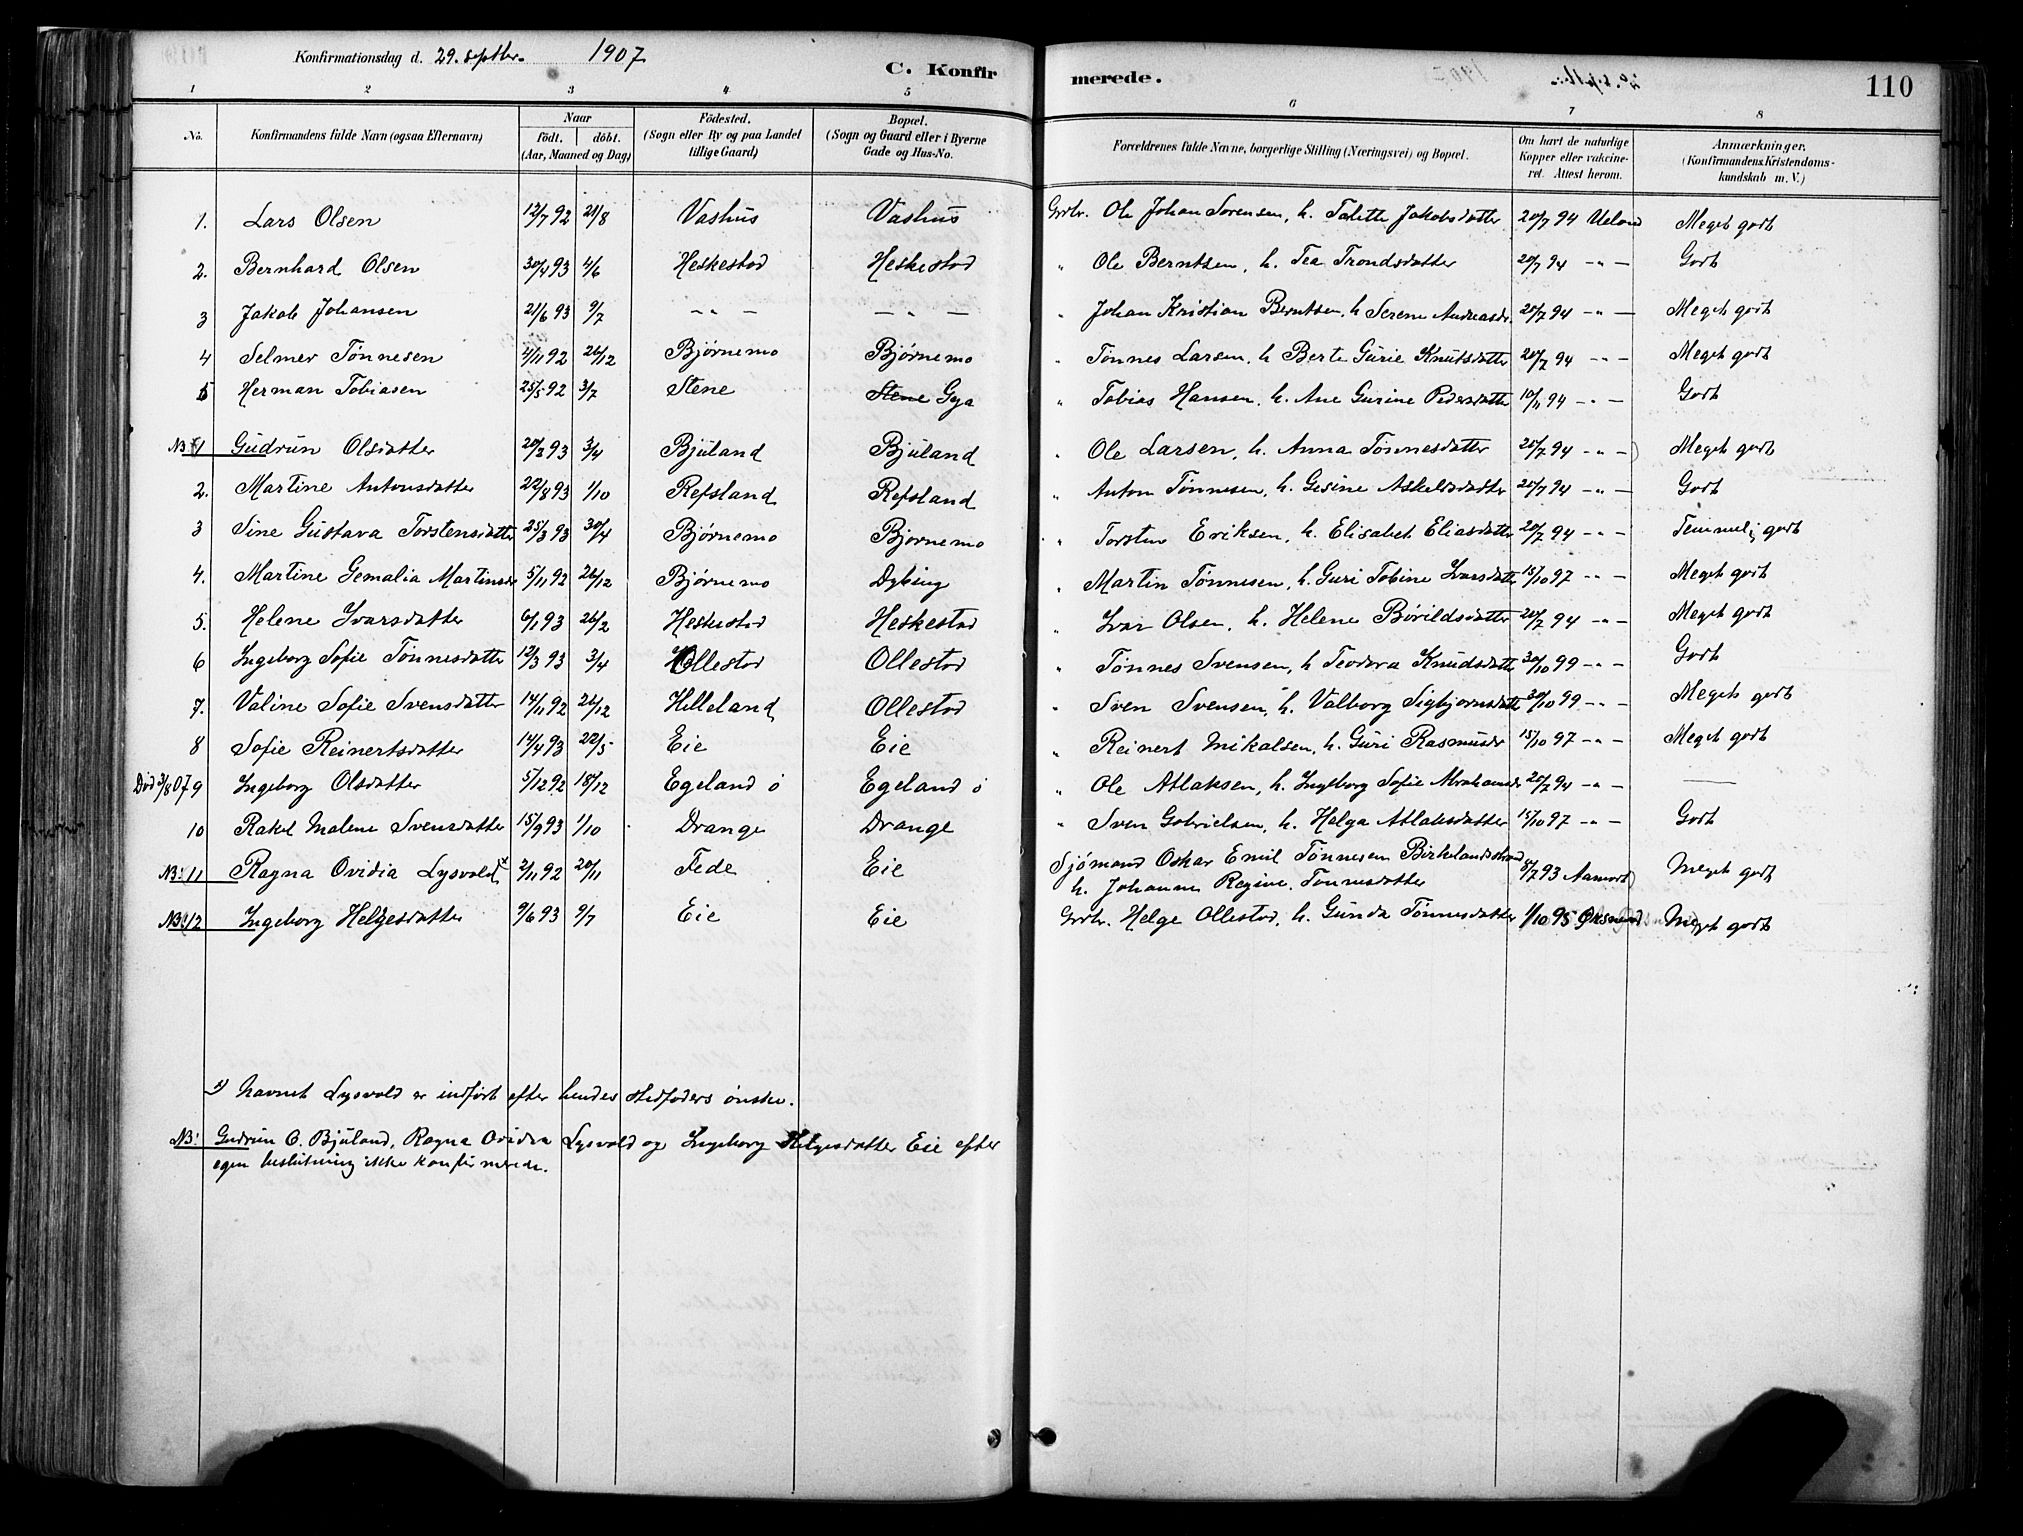 Konfirmationsdag d. 29. septbr. 1907
C. Konfirmerede. 110
1 2 3 4 5 6 7 8
No. Konfirmandens fulde Navn (ogsaa Efternavn) Naar født. døbt. (Aar, Maaned og Dag) Fødested. (Sogn eller By og paa Landet tillige Gaard) Bopæl. (Sogn og Gaard eller i Byerne Gade og Hus-No. Forældrenes fulde Navne, borgerlige Stilling (Næringsvei) og Bopæl. Om havt de naturlige Kopper eller vakcineret. Attest herom. Anmærkninger. (Konfirmandens Kristendomskundskab m. V.)
1. Lars Olsen 12/7 92 21/8 Vashus Vashus Grbr. Ole Johan Sørensen, h. Talette Jakobsdatter 20/7 94 Ueland Meget godt
2. Bernhard Olsen 30/4 93 4/6 Heskestad Heskestad " Ole Berntsen, h. Tea Trondsdatter 20/7 94 -"- Godt
3 Jakob Johansen 21/6 93 9/7 -"- -"- " Johan Kristian Berntsen, h Serene Andreasdr. 20/7 94 -"- Meget godt
4 Selmer Tønnesen 4/11 92 26/12 Bjørnemo Bjørnemo " Tønnes Larsen, h Berte Gurie Knutsdatter 20/7 94 -"- Meget godt
5 Herman Tobiasen 25/5 92 3/7 Stene Stene Gya " Tobias Hansen, h. Ane Gurine Pedersdatter 10/11 94 -"- Godt
NB 1 Gudrun Olsdatter 20/2 93 3/4 Bjuland Bjuland " Ole Larsen, h. Anna Tønnesdatter 20/7 94 -"- Meget godt
2. Martine Antonsdatter 22/8 93 1/10 Refsland Refsland " Anton Tønnesen, h. Gesine Askeldsdatter 20/7 94 -"- Godt
3 Sine Gustava Torstensdatter 25/3 93 30/4 Bjørnemo Bjørnemo " Torsten Eriksen, h. Elisabet Eliasdatter 20/7 94 -"- Temmelig godt
4. Martine Gemalia Martinsdr 5/11 92 26/12 Bjørnemo Dybing " Martin Tønnesen, h. Guri Tobine Ivarsdatter 15/10 97 -"- Meget godt
5. Helene Ivarsdatter 6/1 93 26/2 Heskestad Heskestad " Ivar Olsen, h. Helene Børildsdatter 20/7 94 -"- Meget godt
6 Ingeborg Sofie Tønnesdatter 12/3 93 3/4 Ollestad Ollestad " Tønnes Svensen, h Teodora Knudsdatter 30/10 99 -"- Godt
7. Valine Sofie Svensdatter 14/11 92 26/12 Helleland Ollestad " Sven Svensen, h. Valborg Sigbjørnsdatter 30/10 99 -"- Meget godt
8 Sofie Reinertsdatter 14/4 93 22/5 Eie Eie " Reinert Mikalsen, h. Guri Rasmusdr 15/10 97 -"- Meget godt
Død 3/8 07 9 Ingeborg Olsdatter 5/12 92 18/12 Egeland ø Egeland ø " Ole Atlaksen, h. Ingeborg Sofie Abrahamsdr 20/7 94 -"- —
10 Rakel Malene Svensdatter 15/9 93 1/10 Drange Drange " Sven Gabrielsen, h. Helga Atlaksdatter 15/10 97 -"- Godt
NB: 11 Ragna Ovidia Lysvold x 2/11 92 20/11 Fede Eie Sjømand Oskar Emil Tønnesen Birkelandstrand 8/7 93 Aamord Meget godt
h. Johanne Regine Tønnesdatter
NB: 12 Ingeborg Helgesdatter 9/6 93 9/7 Eie Eie Grbr. Helge Ollestad, h. Gunda Tønnesdatter 1/10 95 Meget godt
x) Navnet Lysvold er indført efter hendes stedfaders ønske.
NB: Gudrun O. Bjuland, Ragna Ovidia Lysvold og Ingeborg Helgesdatter Eie efter
egen beslutning ikke konfirmerede.